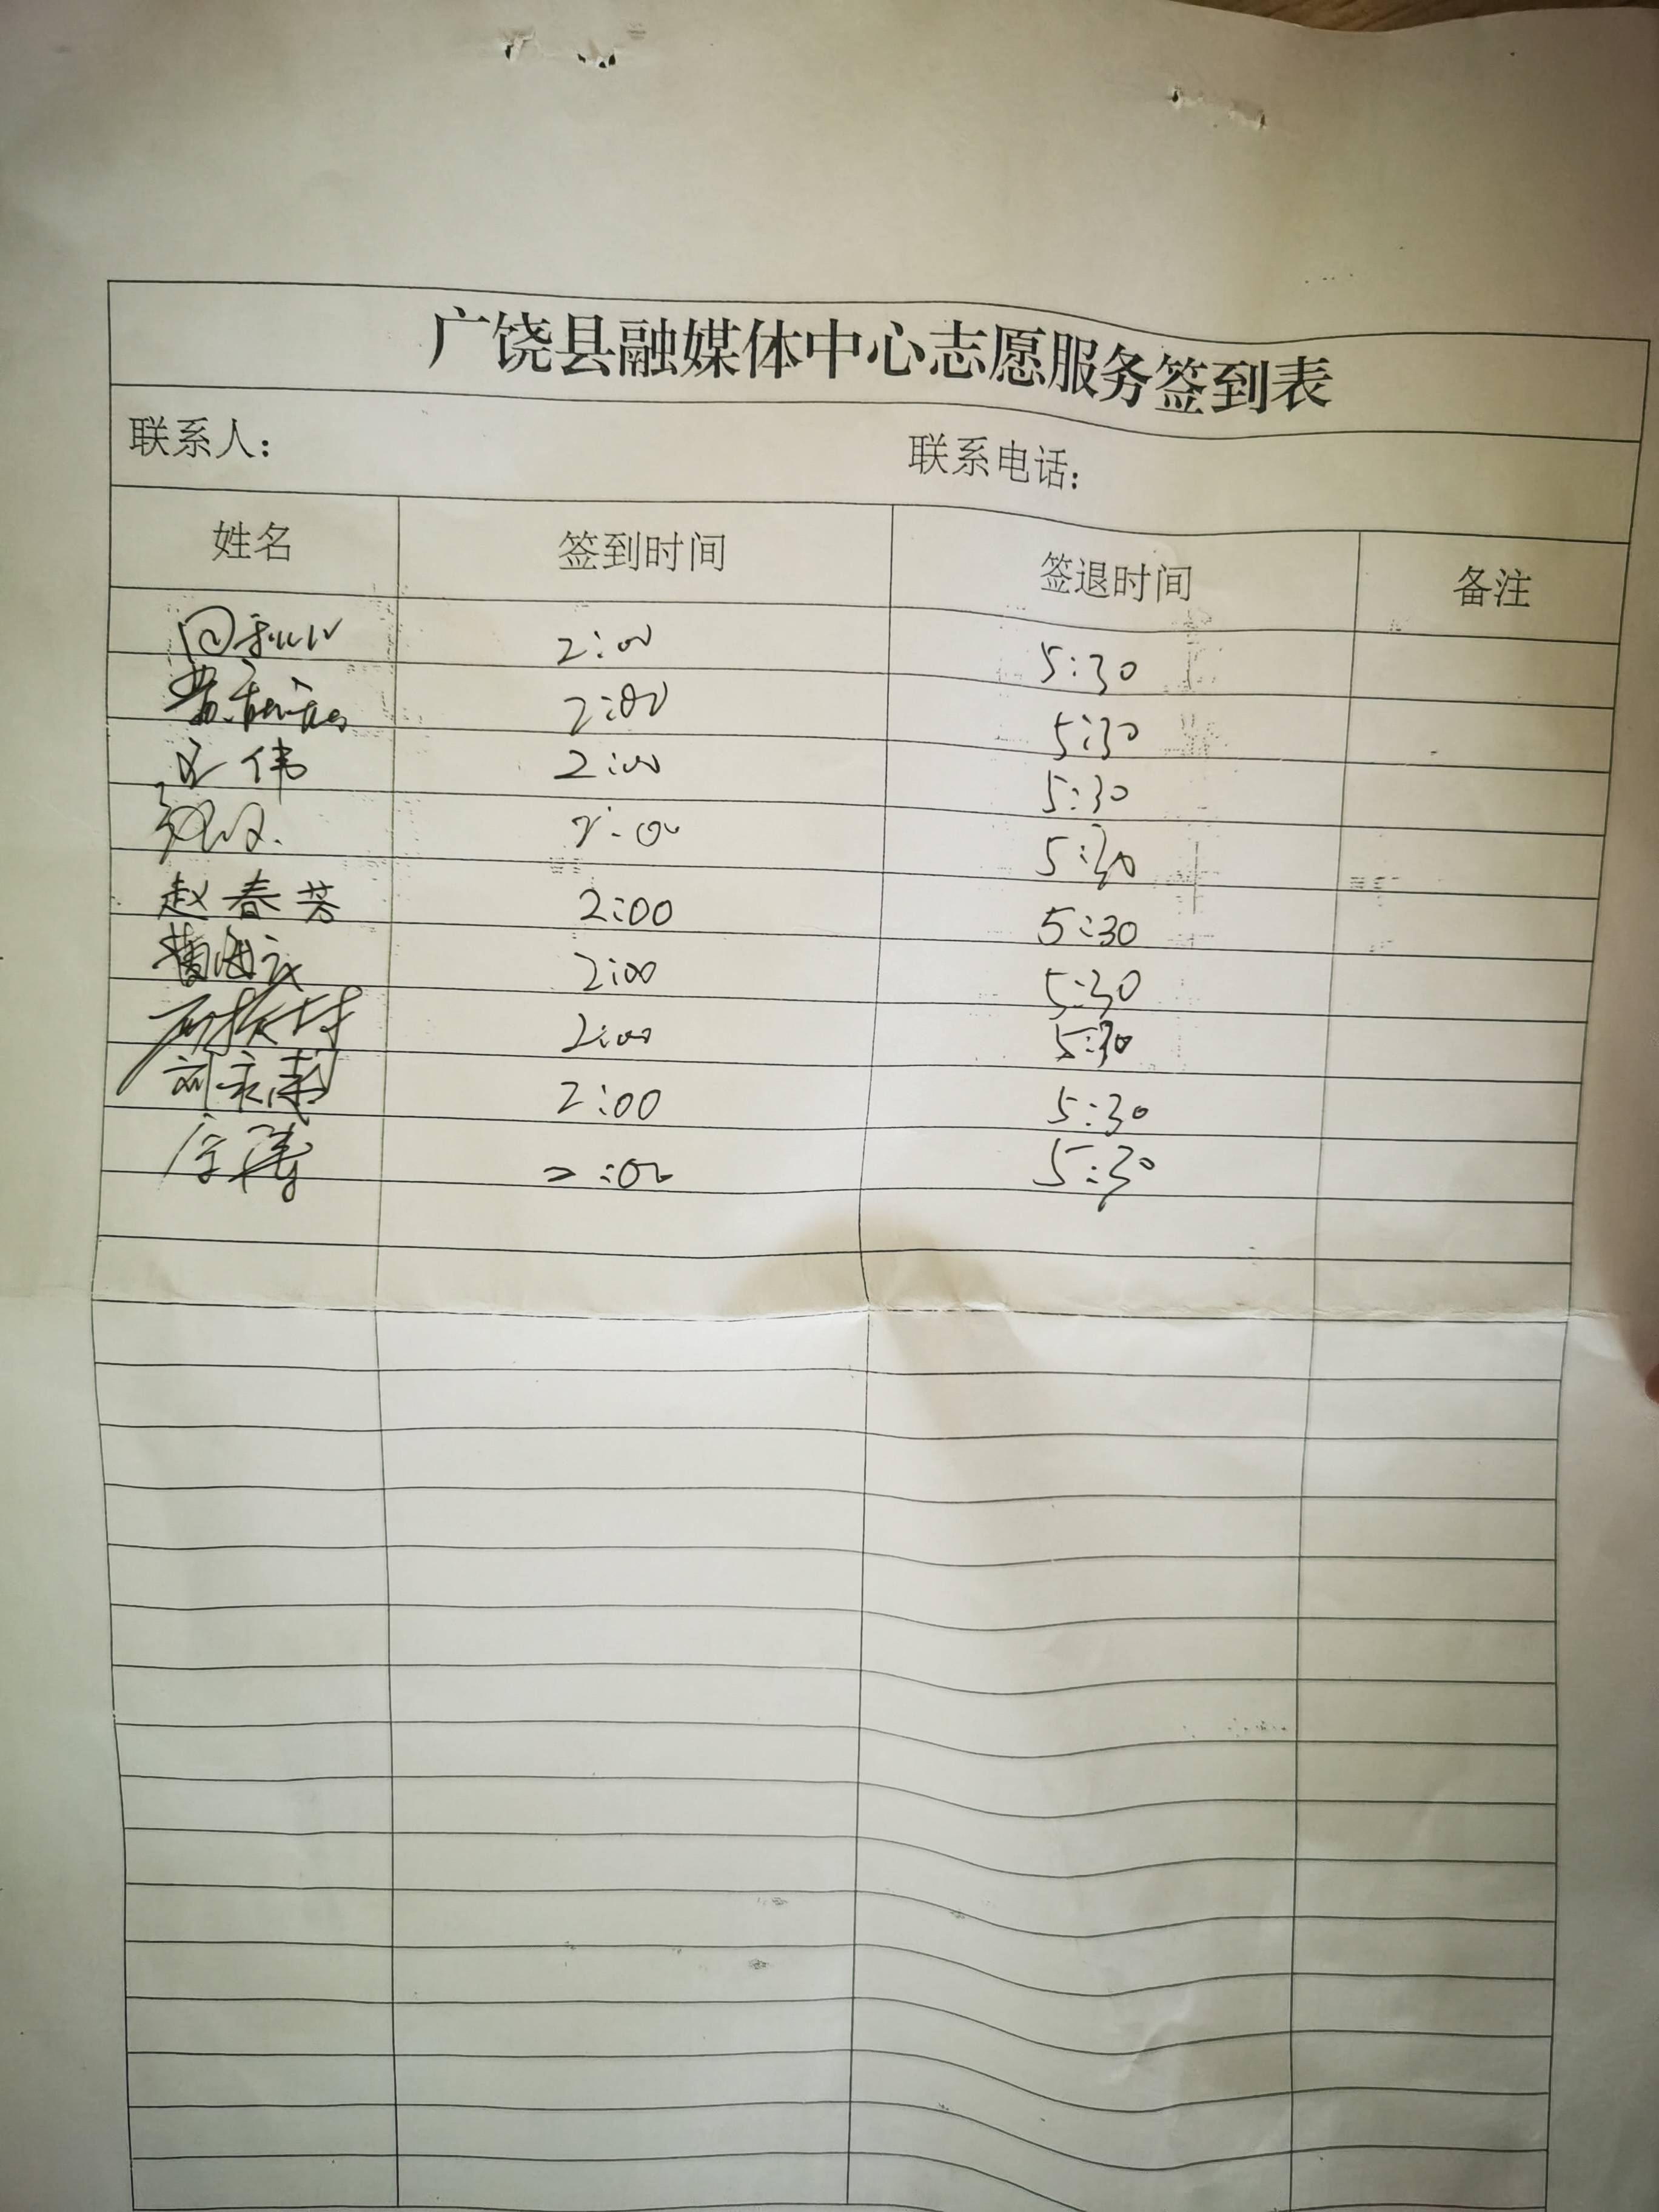 广饶县融媒体中心志愿服务签到表
联系人: 联系电话:
姓名 签到时间 签退时间 备注
2:00 5:30
2:00 5:30
伟 2:00 5:30
2:00 5:30
赵春芳 2:00 5:30
曹海 2:00 5:30
2:00 5:30
刘 2:00 5:30
2:00 5:30